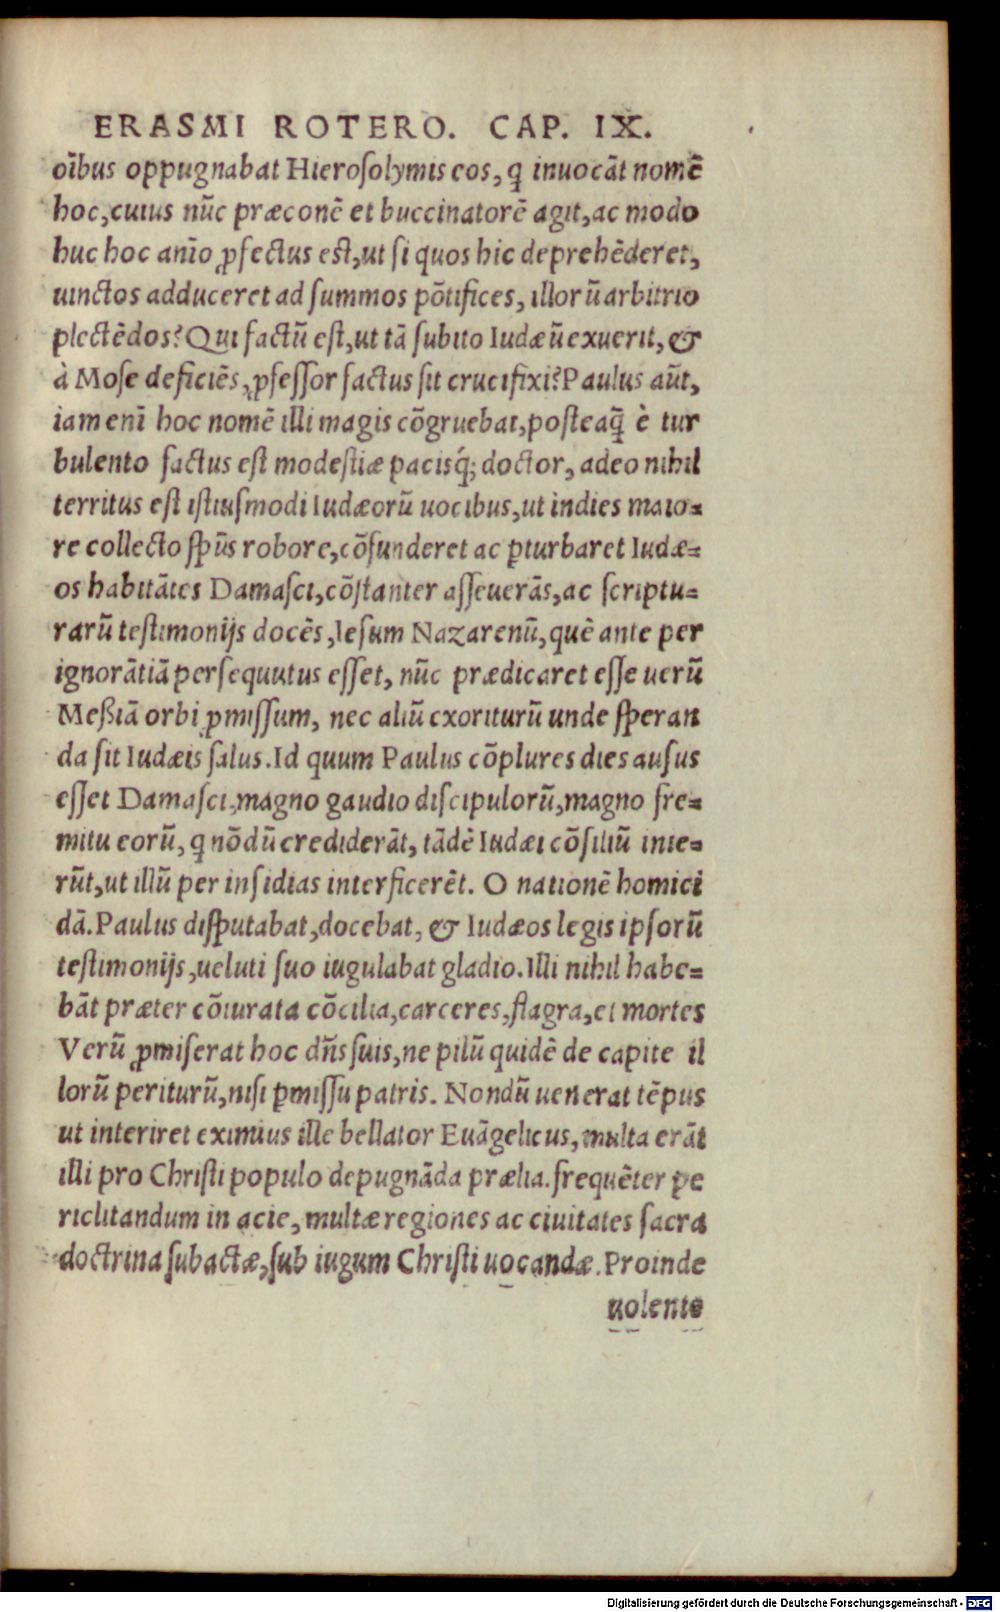 ERASMI ROTERO. CAP. IX.
oībus oppugnabat Hierosolymis eos, q̄ inuocāt nomē
hoc, cuius nūc præconē et buccinatorē agit, ac modo
huc hoc anīo ꝓfectus est, ut si quos hic deprehēderet,
uinctos adduceret ad summos pōtifices, illorū arbitrio
plectēdos? Qui factū est, ut tā subito Iudæū exuerit, &
à Mose deficiēs, ꝓfessor factus sit crucifixi? Paulus aūt,
iam enī hoc nomē illi magis cōgruebat, posteaq̄ è tur
bulento factus est modestiæ pacisq́; doctor, adeo nihil
territus est istiusmodi Iudæorū uocibus, ut indies maio=
re collecto spūs robore, cōfunderet ac ꝑturbaret Iudæ=
os habitātes Damasci, cōstanter asseuerās, ac scriptu=
rarū testimonijs docēs, Iesum Nazarenū, quē ante per
ignorātiā persequutus esset, nūc prædicaret esse uerū
Meßiā orbi ꝓmissum, nec aliū exoriturū unde speran
da sit Iudæis salus. Id quum Paulus cōplures dies ausus
esset Damasci, magno gaudio discipulorū, magno fre=
mitu eorū, q nōdū crediderāt, tādē Iudæi cōsiliū inie=
rūt, ut illū per insidias interficerēt. O nationē homici
dā. Paulus disputabat, docebat, & Iudæos legis ipsorū
testimonijs, ueluti suo iugulabat gladio. Illi nihil habe=
bāt præter cōiurata cōcilia, carceres, flagra, et mortes
Verū ꝓmiserat hoc dn̄s suis, ne pilū quidē de capite il
lorū periturū, nisi ꝑmissu patris. Nondū uenerat tēpus
ut interiret eximius ille bellator Euāgelicus, multa erāt
illi pro Christi populo depugnāda prælia. frequēter pe
riclitandum in acie, multæ regiones ac ciuitates sacra
doctrina subactæ, sub iugum Christi uocandæ. Proinde
uolente
Digitalisierung gefördert durch die Deutsche Forschungsgemeinschaft - DFG